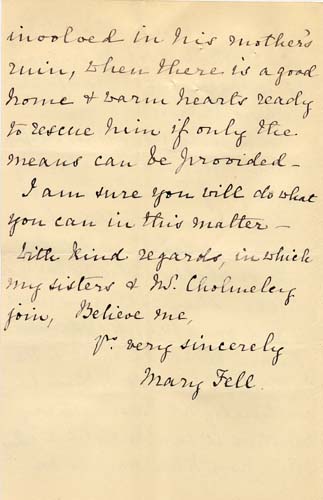 involved in his mother's
ruin, when there is a good
home & warm hearts ready
to rescue him if only the
means can be provided –
I am sure you will do what
you can in this matter –
With kind regards, in which
my sisters & Mr. Cholmeley
join, Believe me,
Yr. very sincerely
Mary Fell.